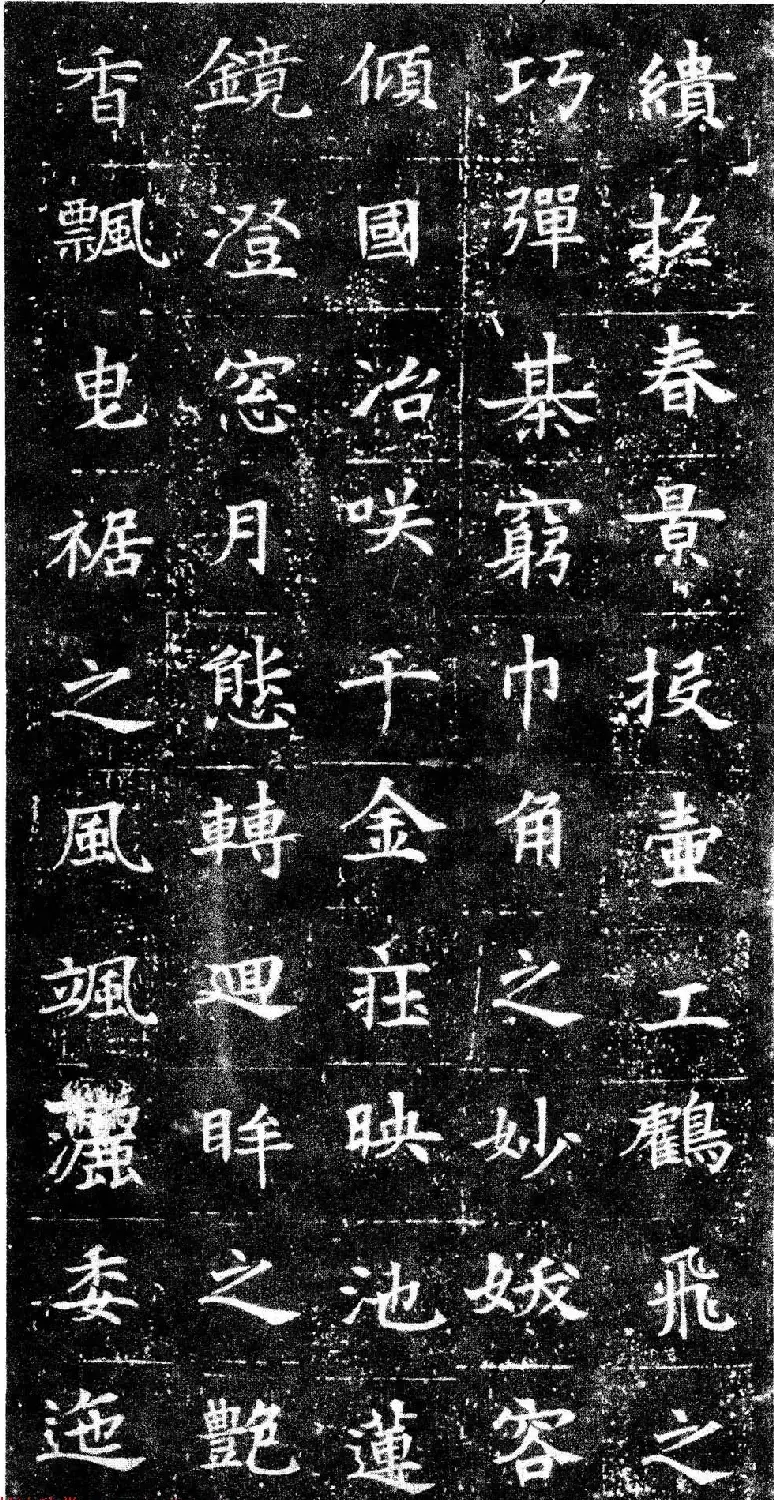 繢扵春景投壺工鸖飛之
巧彈棊窮巾角之妙妖容
傾國冶咲千金莊映池蓮
鏡澄窓月態轉迴眸之艷
香飄曳裾之風颯灑委迤